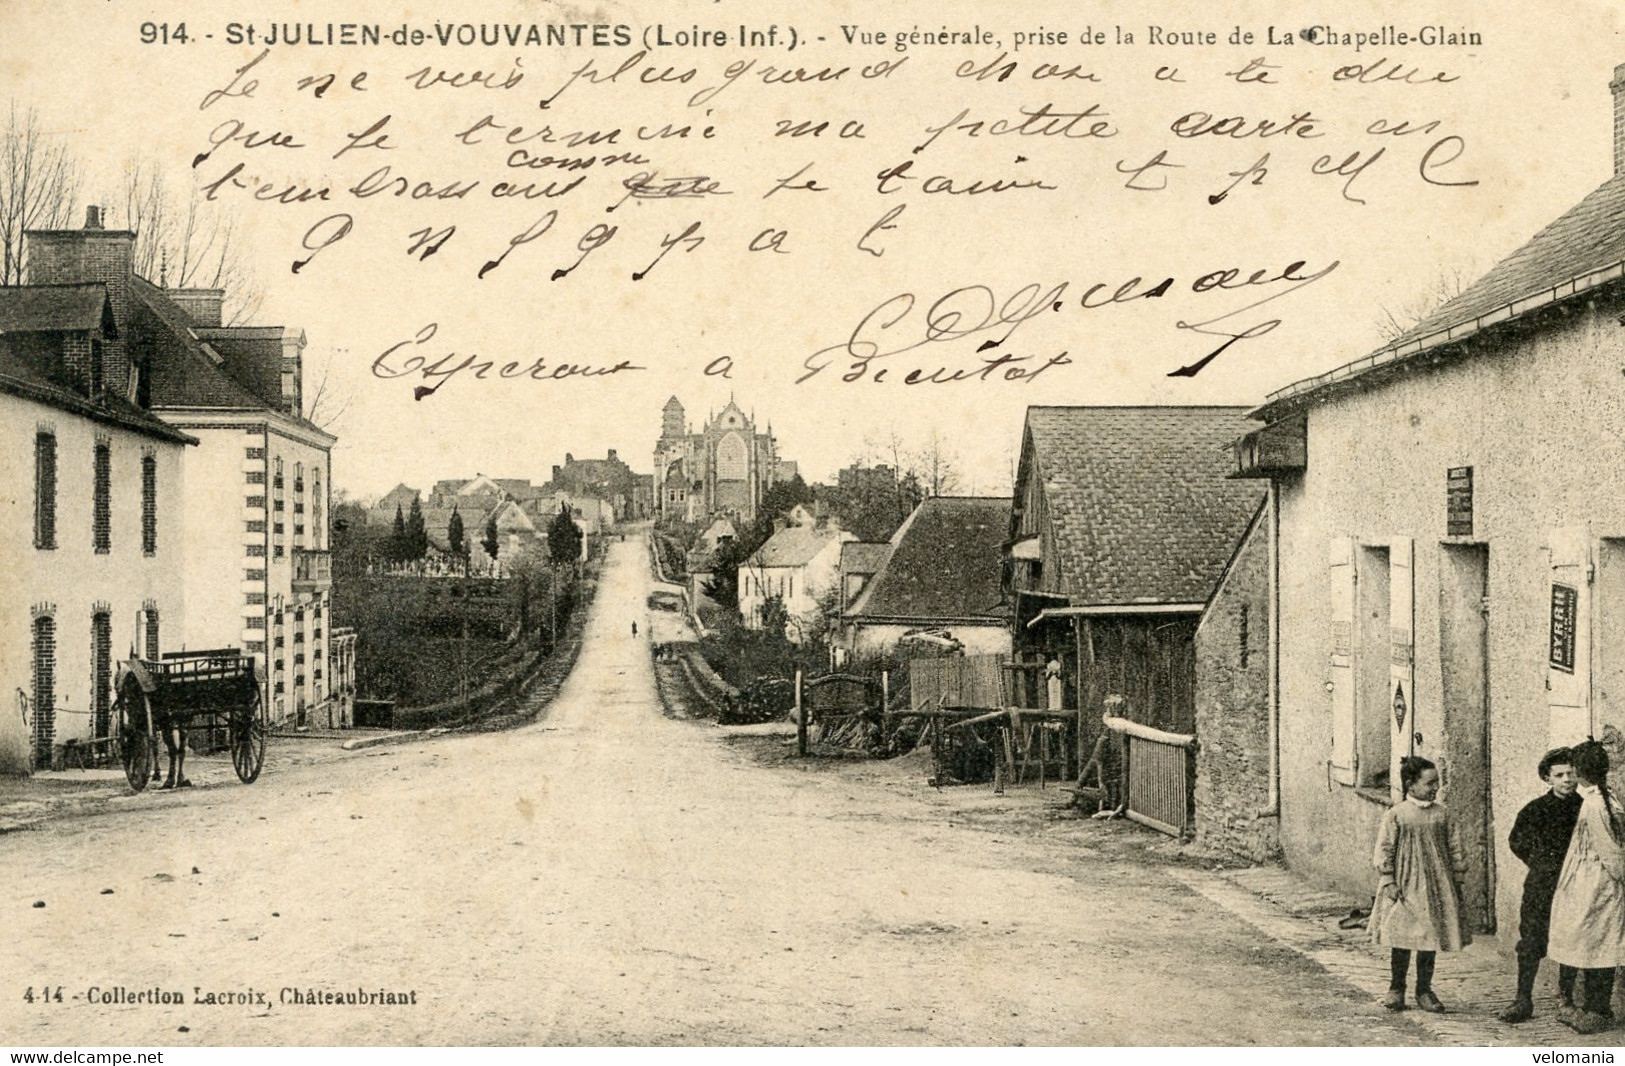 914. - St-JULIEN-de-VOUVANTES (Loire Inf.). - Vue générale, prise de la Route de La Chapelle-Glain
Je ne vois plus grand chose a te dire
que je termine ma petite carte en
t'embrassant comme que je t'aime t p M C
q n s q p a t
Esperant a Bientot
BYRRH
4-14 - Collection Lacroix, Châteaubriant
Delcampe.net
velomania